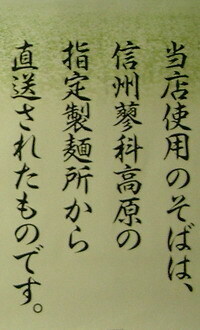 当店使用のそばは、
信州蓼科高原の
指定製麺所から
直送されたものです。